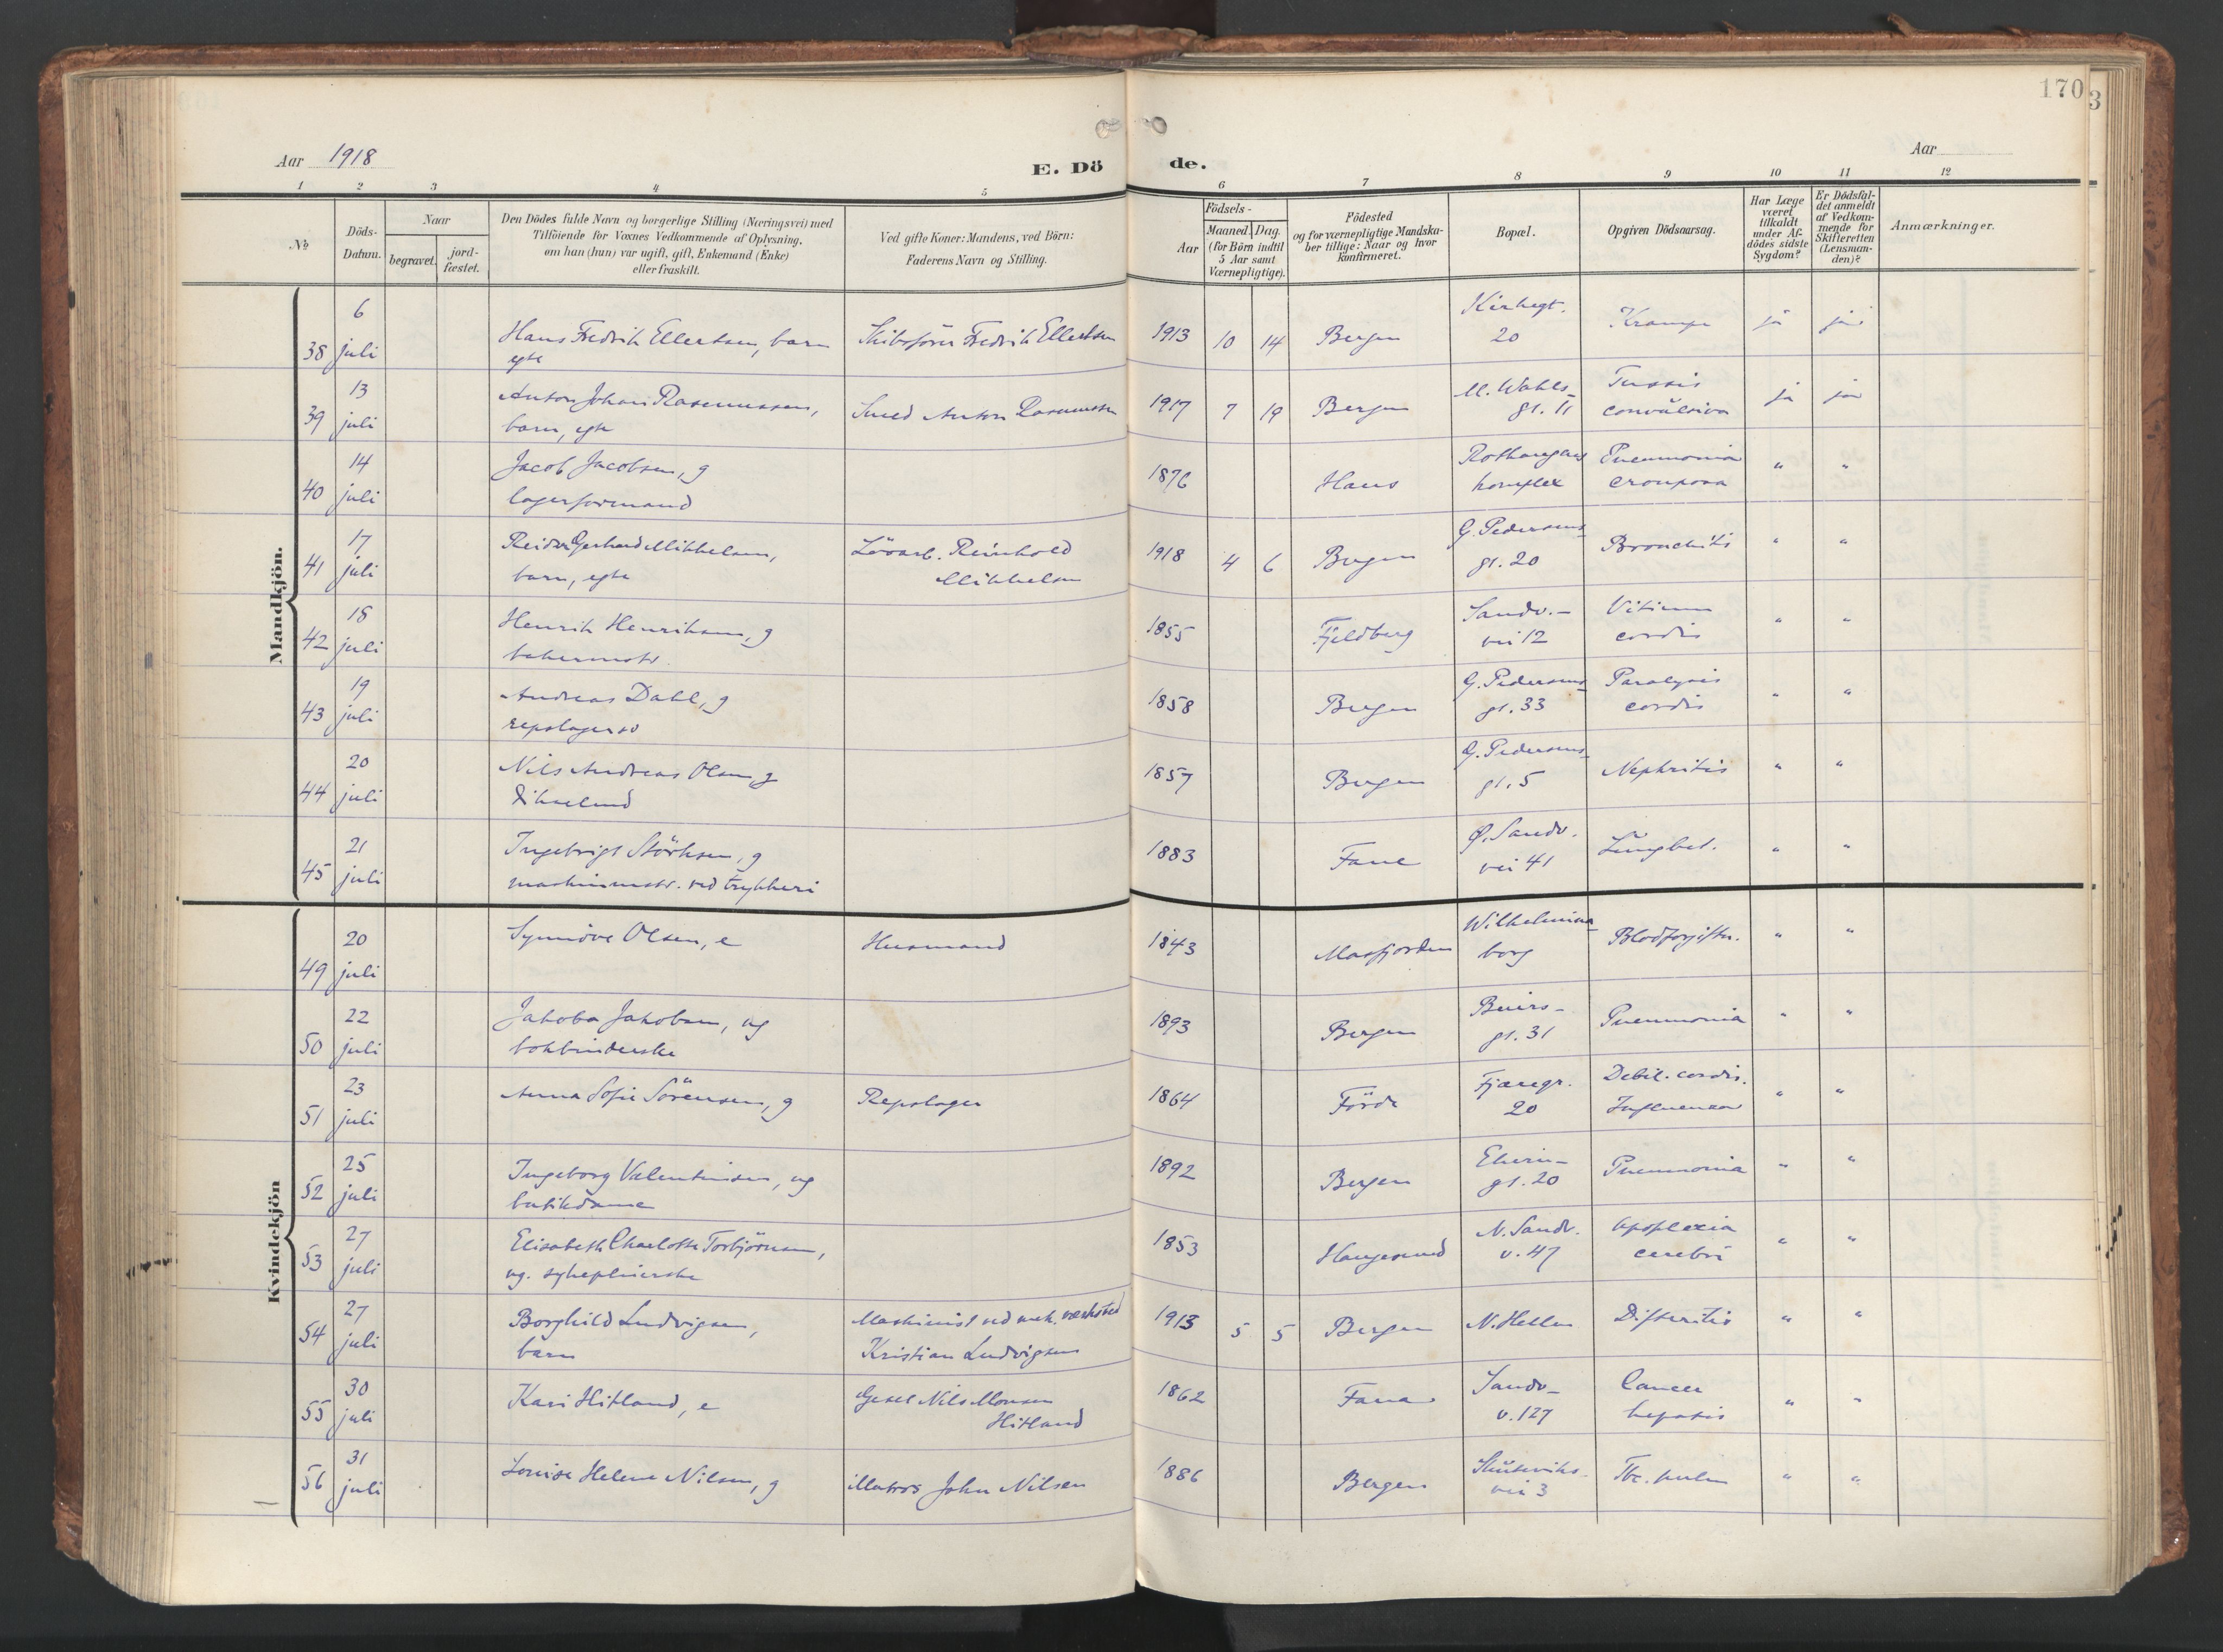 170
3
Aar 1918
E. Dö de.
Aar
1 2 3 4 5 6 7 8 9 10 11 12
No
Döds-
Datum.
Naar
begravet.
jord-
fæstet.
Den Dödes fulde Navn og borgerlige Stilling (Næringsvei) med
Tilföiende for Voxnes Vedkommende af Oplysning,
om han (hun) var ugift, gift, Enkemand (Enke)
eller fraskilt.
Ved gifte Koner: Mandens, ved Börn:
Faderens Navn og Stilling.
Födsels-
Aar
Maaned. Dag.
(for Börn indtil
5 Aar samt
Værnepligtige).
Födested
og for værnepligtige Mandska-
ber tillige: Naar og hvor
konfirmeret.
Bopæl.
Opgiven Dödsaarsag.
Har Læge
været
tilkaldt
under Af-
dödes sidste
Sygdom?
Er Dödsfal-
det anmeldt
af Vedkom-
mende for
Skifteretten
(Lensman-
den)?
Anmærkninger.
Mandkjön.
6 Kirkegt.
38 juli Hans Fredrik Ellertsen, barn Skibsfører Fredrik Ellertsen 1913 10 14 Bergen 20 Krampe ja ja
egte
13 Anton Johan Rasmussen, M. Wahls- Tussis
39 juli barn, egte Smed Anton Rasmussen 1917 7 19 Bergen gt. 11 convulsiva ja ja
14 Jacob Jacobsen, g Rothaugens Pneumonia
40 juli lagerformand 1876 Haus komplex crouposa " "
17 Reidar Gerhard Mikkelsen, Reinhold G. Pedersens
41 juli barn, egte Mikkelsen 1918 4 6 Bergen gt. 20 Bronchitis " "
18 Henrik Henriksen, g Sandv.- Vitium
42 juli bakermstr. 1855 Fjeldberg vei 12 cordis " "
19 Andreas Dahl, g G. Pedersens- Paralysis
43 juli 1858 Bergen gt. 33 cordis " "
20 Nils Andreas Olsen, g G. Pedersens-
44 juli 1857 Bergen gt. 5 Nephritis " "
21 Ingebrigt Störksen, g Ø. Sandv.
45 juli maskinmstr. ved trykkeri 1883 Fane vei 41 Lungbet. " "
Kvindekjön
20 Synnöve Olsen, e Husmand Wilhelmina-
49 juli 1843 Masfjorden borg Blodforgiftn. " "
22 Jakoba Jakobsen, ug
50 juli bokbinderske 1893 Bergen gt. 31 Pneumonia " "
23 Anna Sofie Sörensen, g Repslager Fjæregr. Debil. cordis.
51 juli 1864 Förde 20 Influenza " "
25 Ingeborg Valentinsen, ug
52 juli butikdame 1892 Bergen gt. 20 Pneumonia " "
27 Elisabeth Charlotte Torbjörnsen, N. Sandv. Apoplexia
53 juli ug. sykepleierske 1853 Haugesund v. 47 cerebri " "
27 Borghild Ludvigsen, Maskinist ved mek. verksted
54 juli barn Kristian Ludvigsen 1913 5 5 Bergen N. Hellen Difteritis " "
30 Kari Hitland, e Nils Monsen Sandv- Cancer
55 juli Hitland 1862 Fana v. 127 hepatis " "
31 Louise Helene Nilsen, g Matros John Nilsen Skuteviks-
56 juli 1886 Bergen vei 3 Tbc. pulm " "